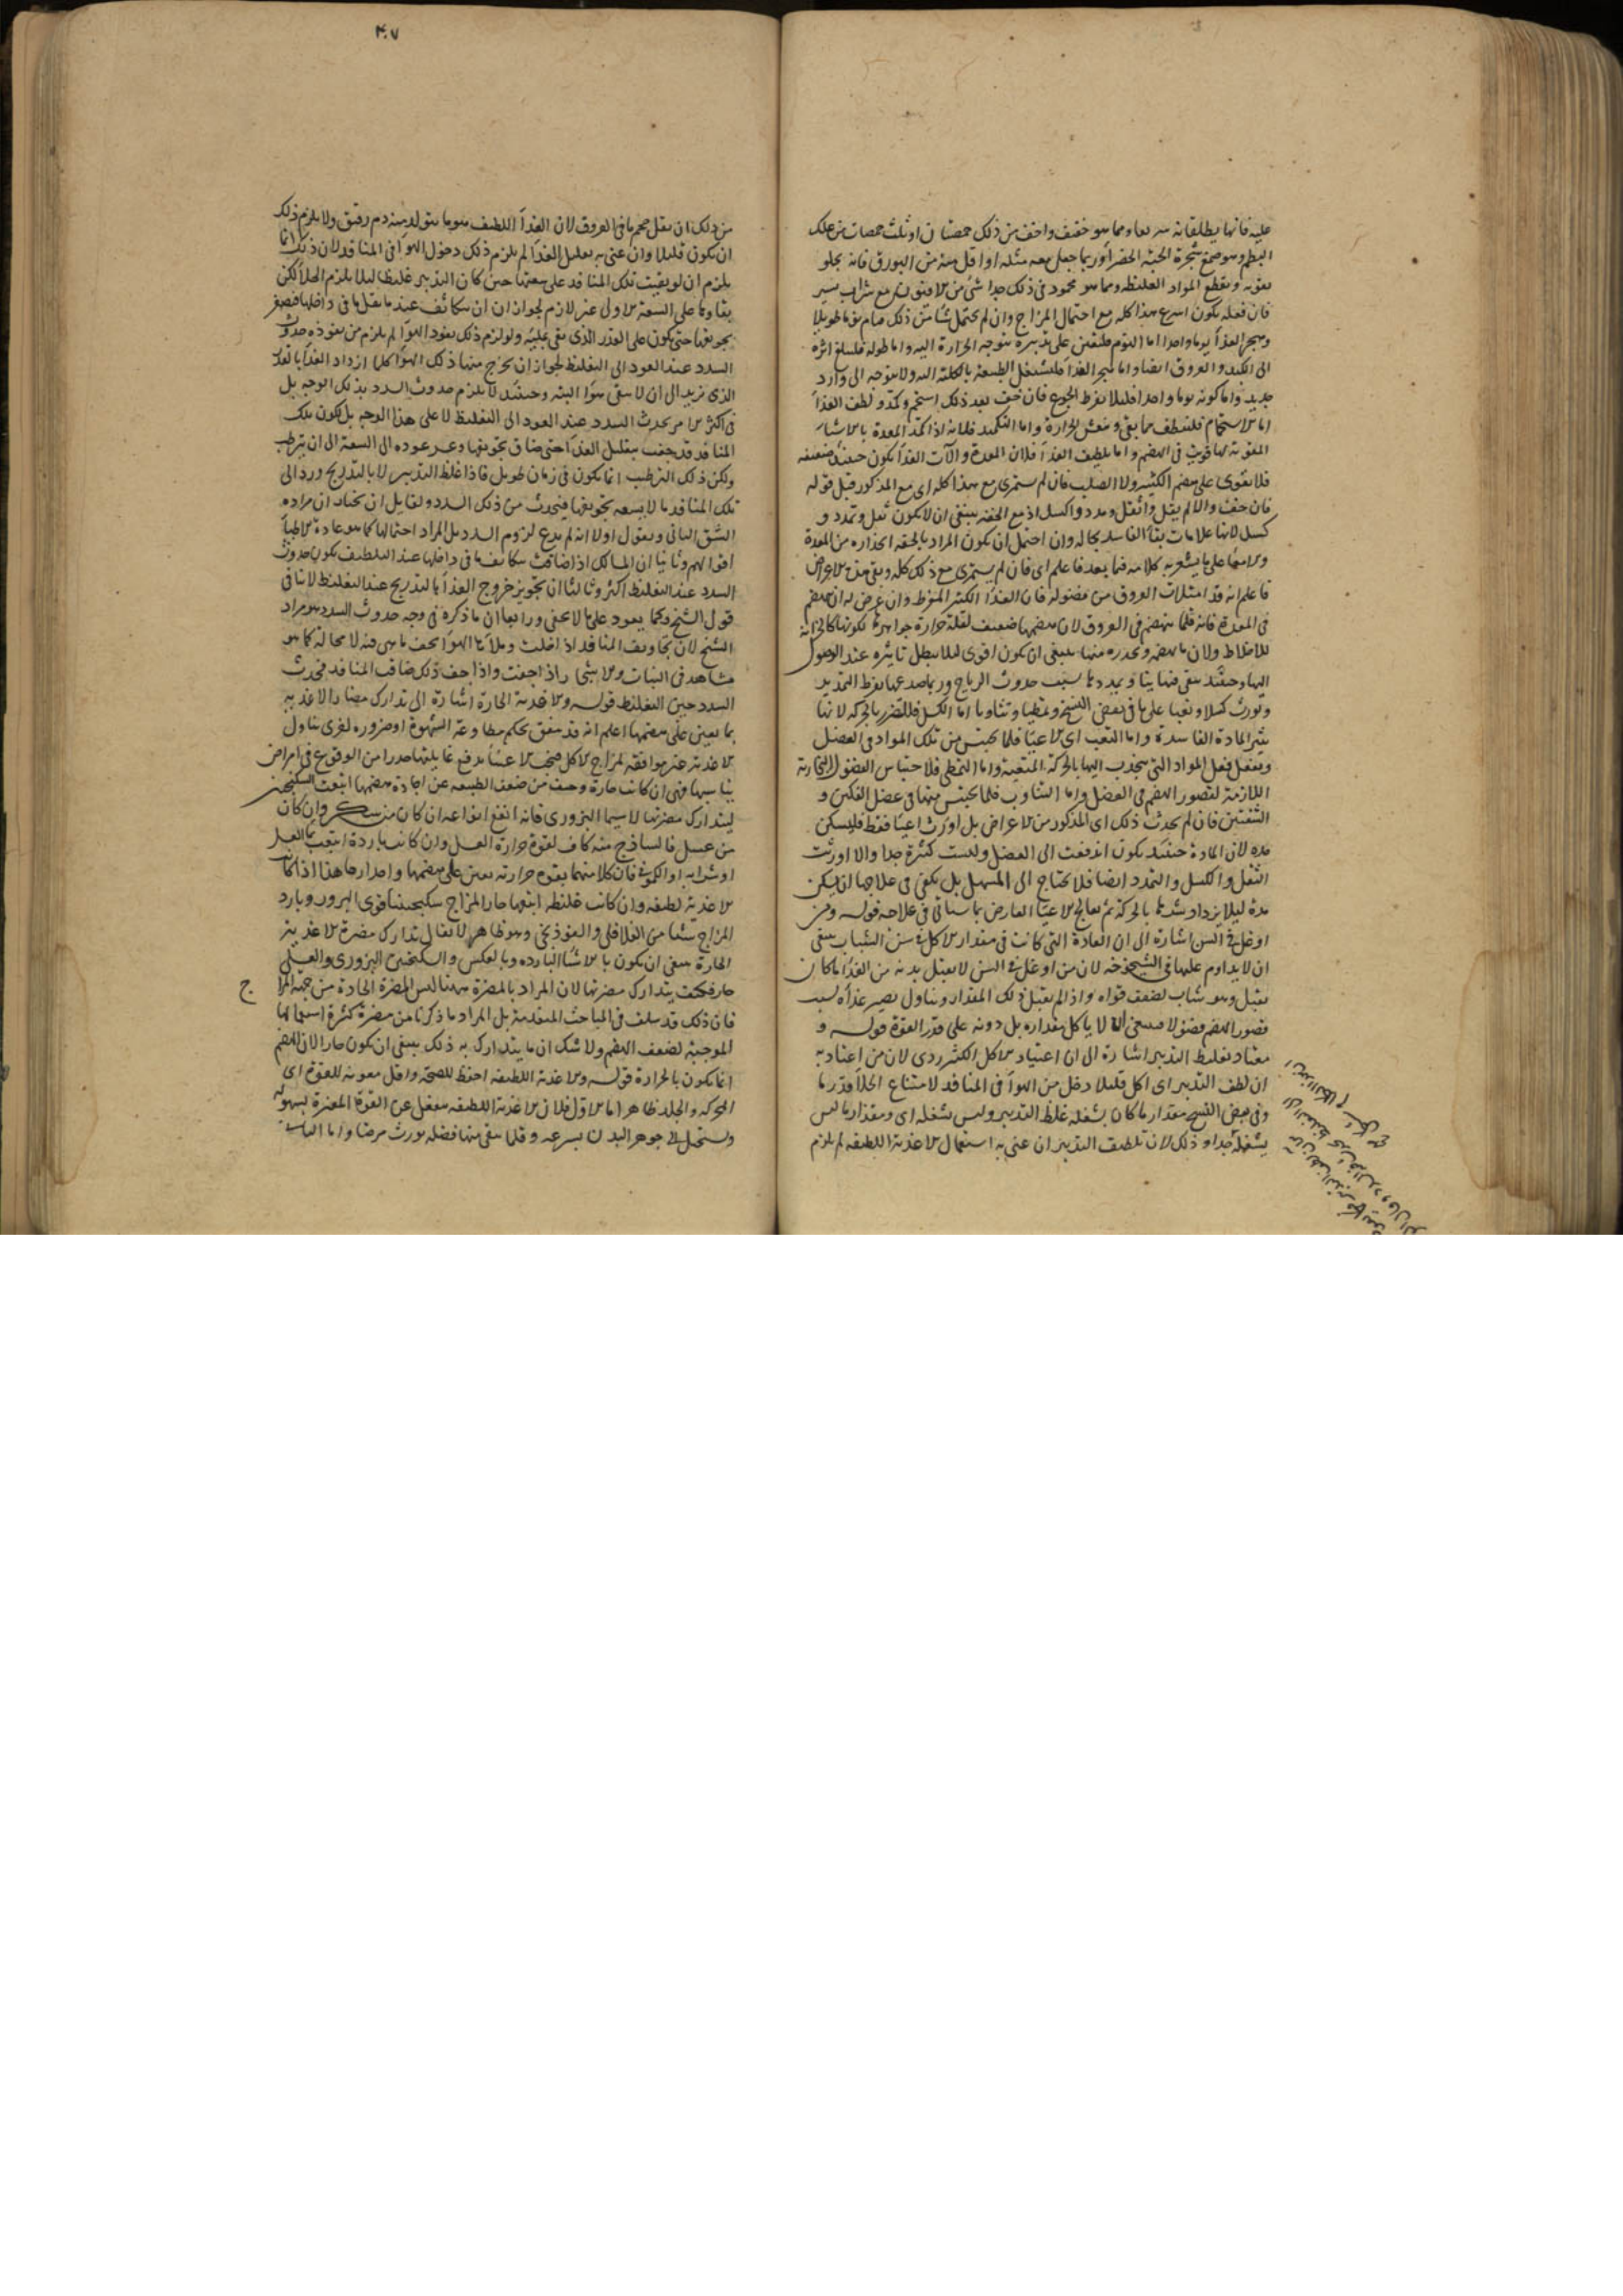 عليه فانها يطلقانه سريعا ومما هو خفيف واخف من ذلك حمصتان او ثلث حمصات من علك
البطم وهو صمغ شجرة الحبة الخضرآ وربما جعل معه مثله او اقل منه من البورق فانه يجلو
بقوته ويقطع المواد الغليظة ومما هو محمود فى ذلك جدا شئ من الافتيمون مع شراب يسير
فان فعله يكون اسرع هذا كله مع احتمال المزاج وان لم يحتمل شيأ من ذلك صام نوما طويلا
وهجر الغذآ يوما واحدا اما النوم فليعين على تدبيره بتوجه الحرارة اليه واما طوله فليبلغ اثره
الى الكبد والعروق ايضا واما هجر الغذآ فليشتغل الطبيعة بالكلية اليه ولا يتوجه الى وارد
جديد واما كونه يوما واحدا فليلا يفرط الجوع فان خف بعد ذلك استحم وكمد ولطف الغذآ
اما الاستحمام فليلطف ما بقى وينعش الحرارة واما التكميد فلانه اذا كمد المعدة بالاشيآ
المقوية لها قويت فى الهضم واما تلطيف الغذآ فلان المعدة وآلات الغذآ يكون حينئذ ضعيفة
فلا يقوى على هضم الكثير ولا الصلب فان لم يستمرى مع هذا كله اى مع المذكور قبل قوله
فان خفت والا لم يقل واثقل ومدد واكسل اذ مع الخفة ينبغى ان لا يكون ثقل وتمدد و
كسل لانها علامات بقآ الفاسد بحاله وان احتمل ان يكون المراد بالخفة انحداره من المعدة
فاعلم انه قد امتلات العروق من فضوله فان الغذآ الكثير المفرط وان عرض له ان يهضم
فى المعدة فانه قلما ينهضم فى العروق لان هضمها ضعيف لقلة حرارة جواهرها لكونها كالخزانة
للاخلاط ولان ما يهضمه وتحدره منها ينبغى ان يكون اقوى ليلا يبطل تاثيره عند الوصول
اليها وحينئذ يبقى فيها نيا ويمددها بسبب حدوث الرياح وربما صدعها بفرط التمديد
ويورث كسلا وتعبا على ما فى بعض النسخ وتمطيا وتثاوبا اما الكسل فللتضرر بالحركة لانها
تثير المادة الفاسدة واما التعب اى الاعيآ فلما يحتبس من تلك المواد فى العضل
ويفعل فعل المواد التى ينجذب اليها بالحركة المتعبة واما التمطى فلاحتباس الفضول البخارية
اللازمة لقصور الهضم فى العضل واما التثاوب فلما يحتبس منها فى عضل الفكين و
الشفتين فان لم يحدث ذلك اى المذكور من الاعراض بل اورث اعيآ فقط فليسكن
مدة لان المادة حينئذ يكون اندفعت الى العضل وليست كثيرة جدا والا اورثت
الثقل والكسل والتمدد ايضا فلا يحتاج الى المسهل بل يكفى فى علاجها ان يسكن
مدة ليلا يزداد شدتها بالحركة ثم يعالج الاعيآ العارض بما سيأتى فى علاجه قوله ومن
اوغل فى السن اشارة الى ان العادة التى كانت فى مقدار الاكل فى سن الشباب ينبغى
ان لا يداوم عليها فى الشيخوخة لان من اوغل فى السن لا يقبل بدنه من الغذآ ما كان
يقبل وهو شاب لضعف قواه واذ لم يقبل ذلك المقدار وتناول يصير غذآه لسبب
قصور الهضم فضولا فينبغى ان لا ياكل مقداره بل دونه على قدر القوة قوله و
معتاد تغليظ التدبير اشارة الى ان اعتياد الاكل الكثير ردى لان من اعتاد به
ان لطف التدبير اى اكل قليلا دخل من الهوآ فى المنافذ لامتناع الخلآ قدر ما
وفى بعض النسخ مقدار ما كان يشغله غلظ التدبير وليس يشغله اى ومقدار ما ليس
يشغله جدا وذلك لان تلطيف التدبير ان عنى به استعمال الاغذية اللطيفة لم يلزم
٣٠٧
من ذلك ان يقل حجم ما فى العروق لان الغذآ اللطيف هو ما يتولد منه دم رقيق ولا يلزم ذلك
ان يكون قليلا وان عنى به تقليل الغذآ لم يلزم ذلك دخول الهوآ فى المنافذ لان ذلك انما
يلزم ان لو بقيت تلك المنافذ على سعتها حين كان التدبير غليظا ليلا يلزم الخلآ لكن
بقاوها على السعة الاولى غير لازم لجواز ان يتكاثف عند ما يقل ما فى داخلها فيصغر
تجويفها حتى يكون على القدر الذى بقى عليه ولو لزم ذلك نفوذ الهوآ لم يلزم من نفوذه حدوث
السدد عند العود الى التغليظ لجواز ان يخرج منها ذلك الهوآ كلما ازداد الغذآ بالقدر
الذى يزيد الى ان لا يبقى هوآ البتة وحينئذ لا يلزم حدوث السدد بذلك الوجه بل
فى اكثر الامر يحدث السدد عند العود الى التغليظ لا على هذا الوجه بل لكون تلك
المنافذ قد يجف بتقليل الغذآ حتى ضاق تجويفها وعسر عوده الى السعة الى ان يترطب
ولكن ذلك الترطيب انما يكون فى زمان طويل فاذا غلظ التدبير لا بالتدريج ورد الى
تلك المنافذ ما لا يسعه تجويفها فيحدث من ذلك السدد ولقايل ان يختار ان مراده
الشق الثانى ويقول اولا انه لم يدع لزوم السدد بل المراد احتمالها كما هو عادة الاطبآ
اقوالهم وثانيا ان المسالك اذا ضاقت بتكاثف ما فى داخلها عند التلطيف يكون حدوث
السدد عند التغليظ اكثر وثالثا ان تجويز خروج الغذآ بالتدريج عند التغليظ لا ينافى
قول الشيخ وكما يعود على ما لا يخفى ورابعا ان ما ذكره فى وجه حدوث السدد هو مراد
الشيخ لان تجاويف المنافذ اذا خلت وملأها الهوآ يجف ما هى فيه لا محالة كما هو
مشاهد فى النبات والاشيآ واذا جفت واذا جف ذلك ضاقت المنافذ فيحدث
السدد حين التغليظ قوله والاغذية الحارة اشارة الى تدارك مضار الاغذية
بما يعين على هضمها اعلم انه قد يتفق بحكم مطاوعة الشهوة او ضرورة اخرى تناول
الاغذية غير موافقة لمزاج الاكل فيجب الاعتنآ بدفع غايلتها حذرا من الوقوع فى امراض
يناسبها فهى ان كانت حارة وخيف من ضعف الطبيعة عن اجادة هضمها اتبعت السكنجبين
ليتدارك مضرتها لا سيما البزورى فانه انفع انواعه ان كان من سكر وان كان
من عسل فالساذج منه كاف لقوة حرارة العسل وان كانت باردة اتبعت بمآ العسل
او شرابه او الكمونى فان كلا منها بقوة حرارته يعين على هضمها وانحدارها هذا اذا كانت
الاغذية لطيفة وان كانت غليظة اتبعها حار المزاج سكنجبينا قوى البزور وبارد
المزاج شيأ من الفلافلى والفوذنجى وهو ظاهر لا يقال تدارك مضرة الاغذية
الحارة ينبغى ان يكون بالاشيآ الباردة وبالعكس والسكنجبين البزورى والعسلى
حار فكيف يتدارك مضرتها لان المراد بالمضرة ههنا ليس المضرة الحادة من جهة المزاج
فان ذلك قد سلف فى المباحث المتقدمة بل المراد ما ذكرنا من مضرة كثرة استعمالها
الموجبة لضعف الهضم ولا شك ان ما يتدارك به ذلك ينبغى ان يكون حارا لان الهضم
انما يكون بالحرارة قوله والاغذية اللطيفة احفظ للصحة واقل معونة للقوة اى
المحركة والجلد ظاهر اما الاول فلان الاغذية اللطيفة ينفعل عن القوة المغيرة بسهولة
ويستحيل الى جوهر البدن بسرعة وقلما يبقى منها فضلة يورث مرضا واما الثانى